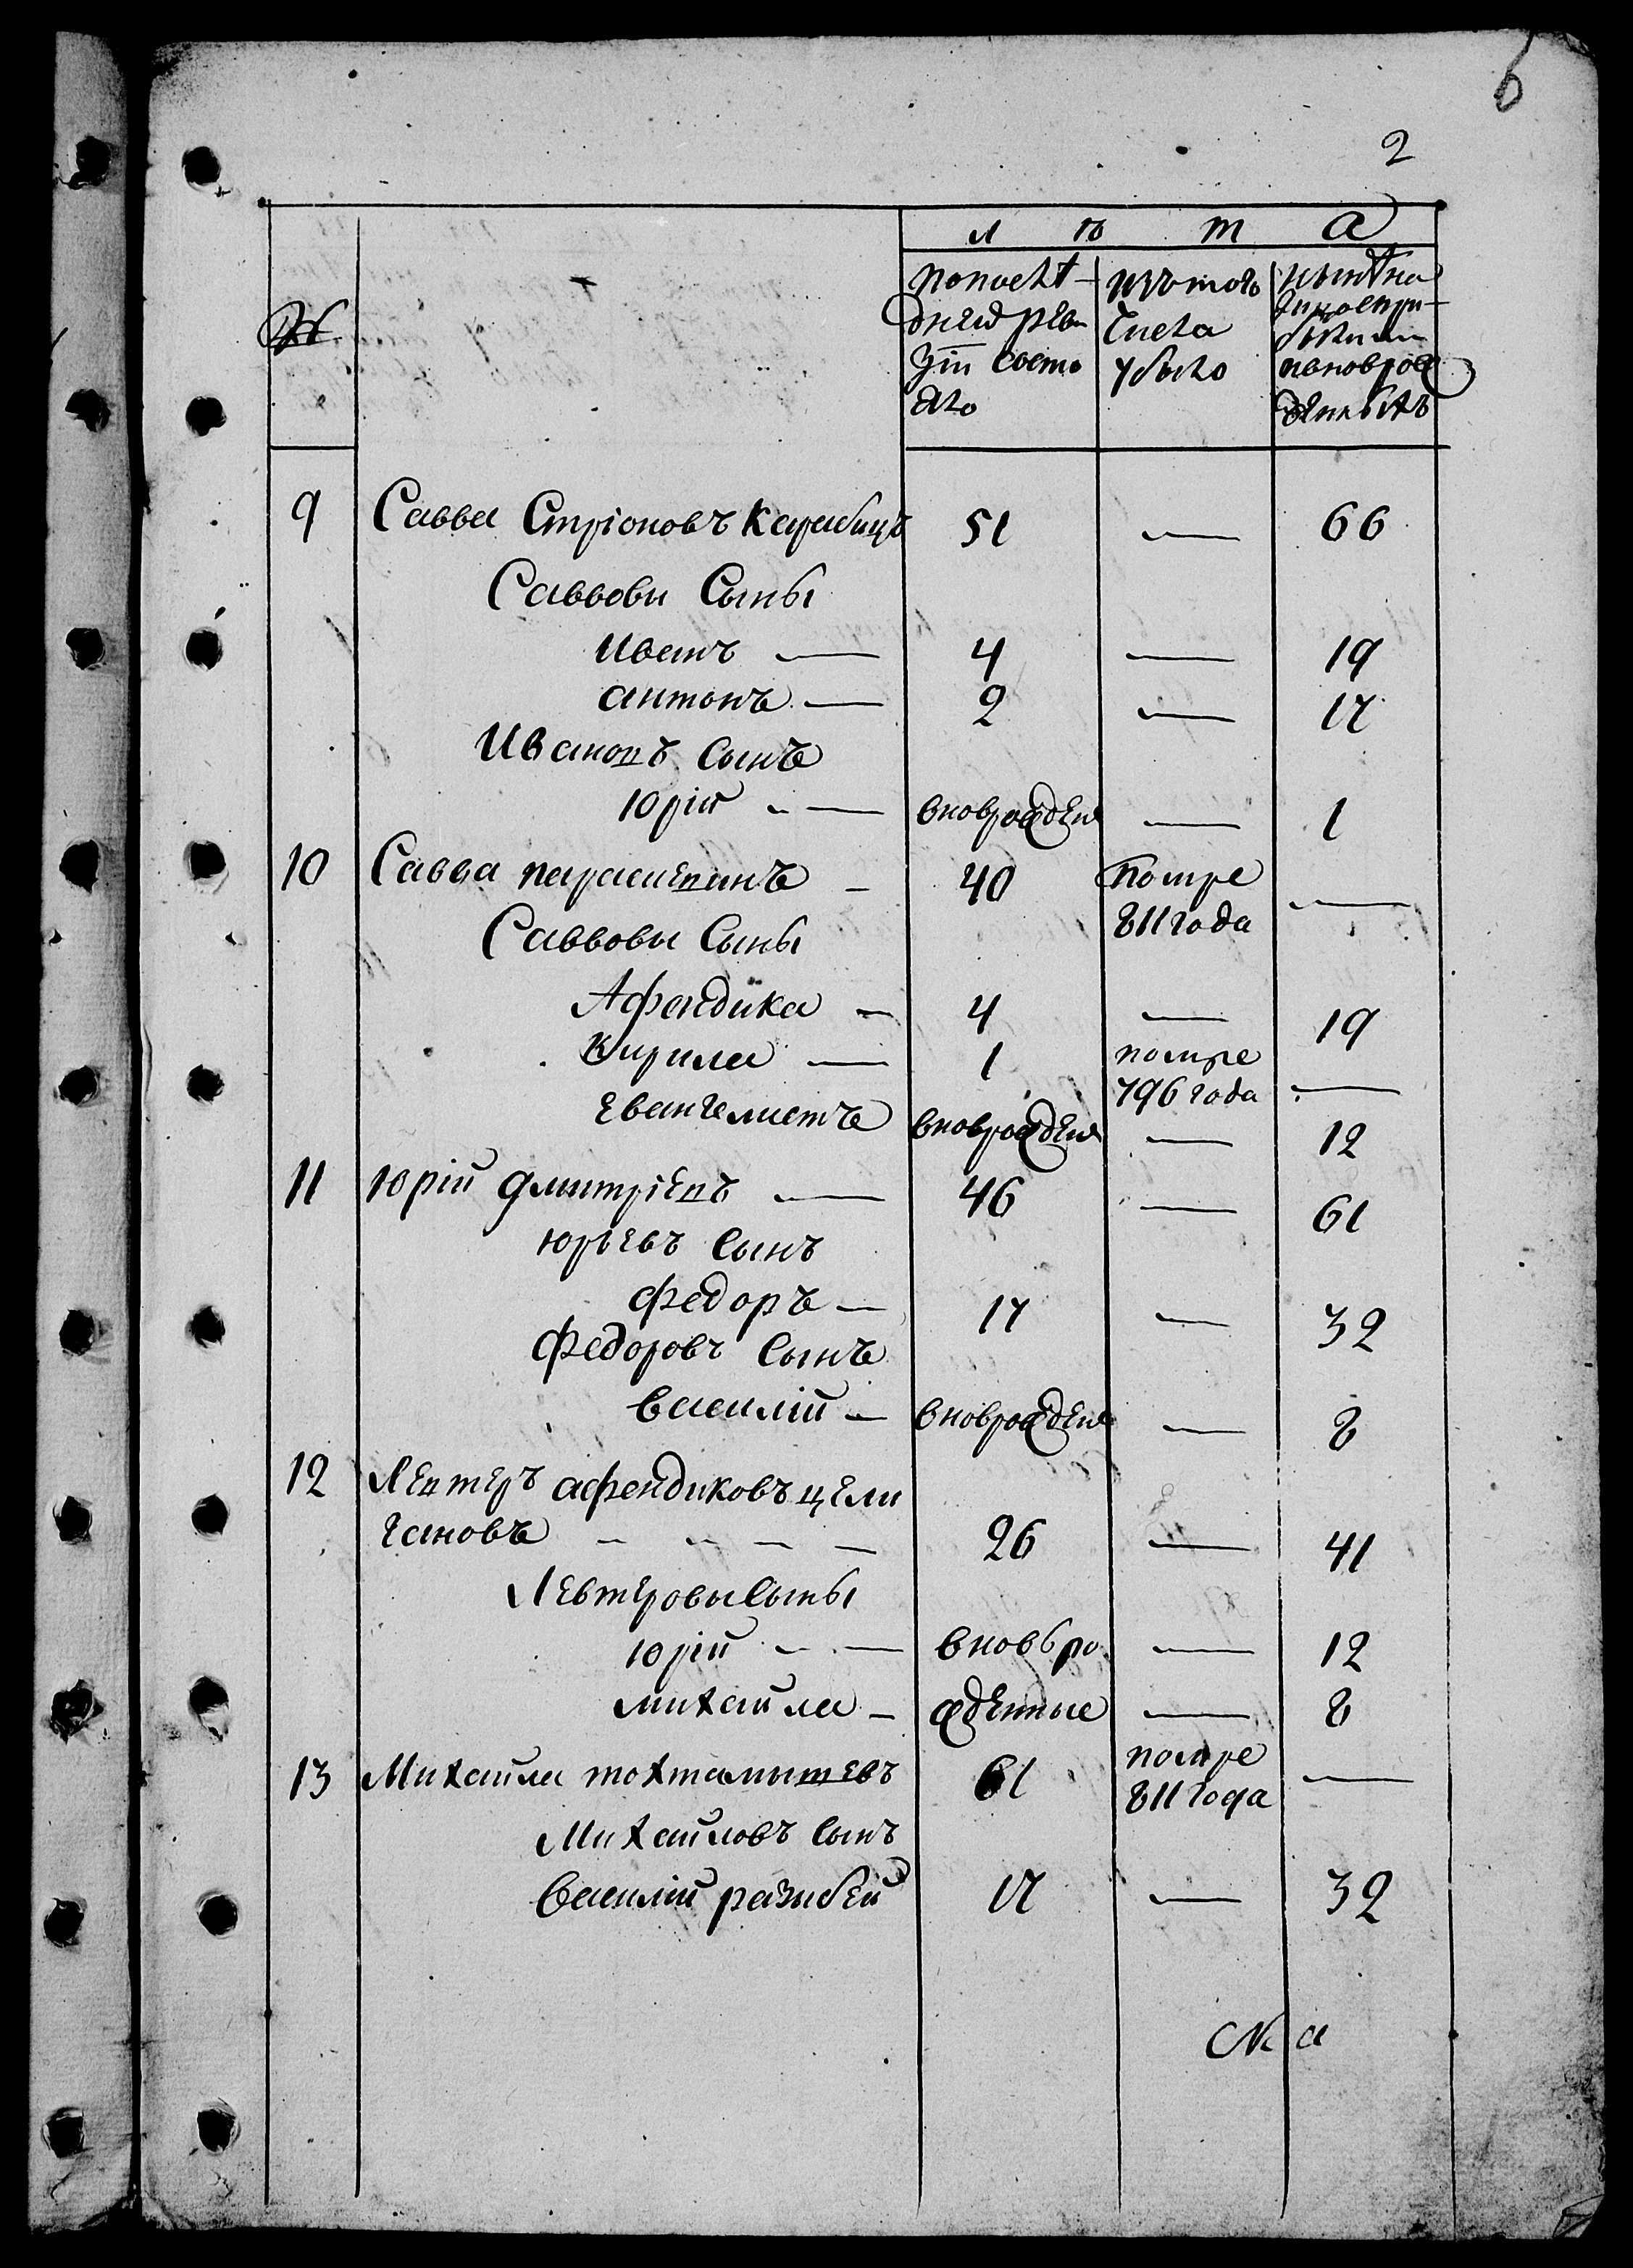 6
2
л ѣ т а
№
по послѣ-
дней реви
зіи состо
яло
изъ того
числа
убыло
нынѣ на
лицо спри-
былыми
и вновь рож
денными
9 Савва Стріоновъ Карабицъ 51 — 66
Саввовы Сыны
Иванъ — 4 — 19
антонъ — 2 — 17
Ивановъ сынъ
Юрій — вновь рожден — 1
10 Савва парасчеванъ — 40 помре
811 года —
Саввовы Сыны
Афендика — 4 — 19
Кирила — 1 помре
796 года —
Евангелистъ вновь рожден — 12
11 Юрій Дмитріевъ — 46 — 61
юрьевъ сынъ
федоръ — 17 — 32
Федоровъ сынъ
василій — вновь рожден — 8
12 Левтеръ афендиковъ цели
гановъ — — — — 26 — 41
Левтеровы сыны
юрій — — вновь ро — 12
михайла — жденные — 8
13 Михайла тохтамышевъ 61 помре
811 года —
Михайловъ сынъ
василій разибей 17 — 32